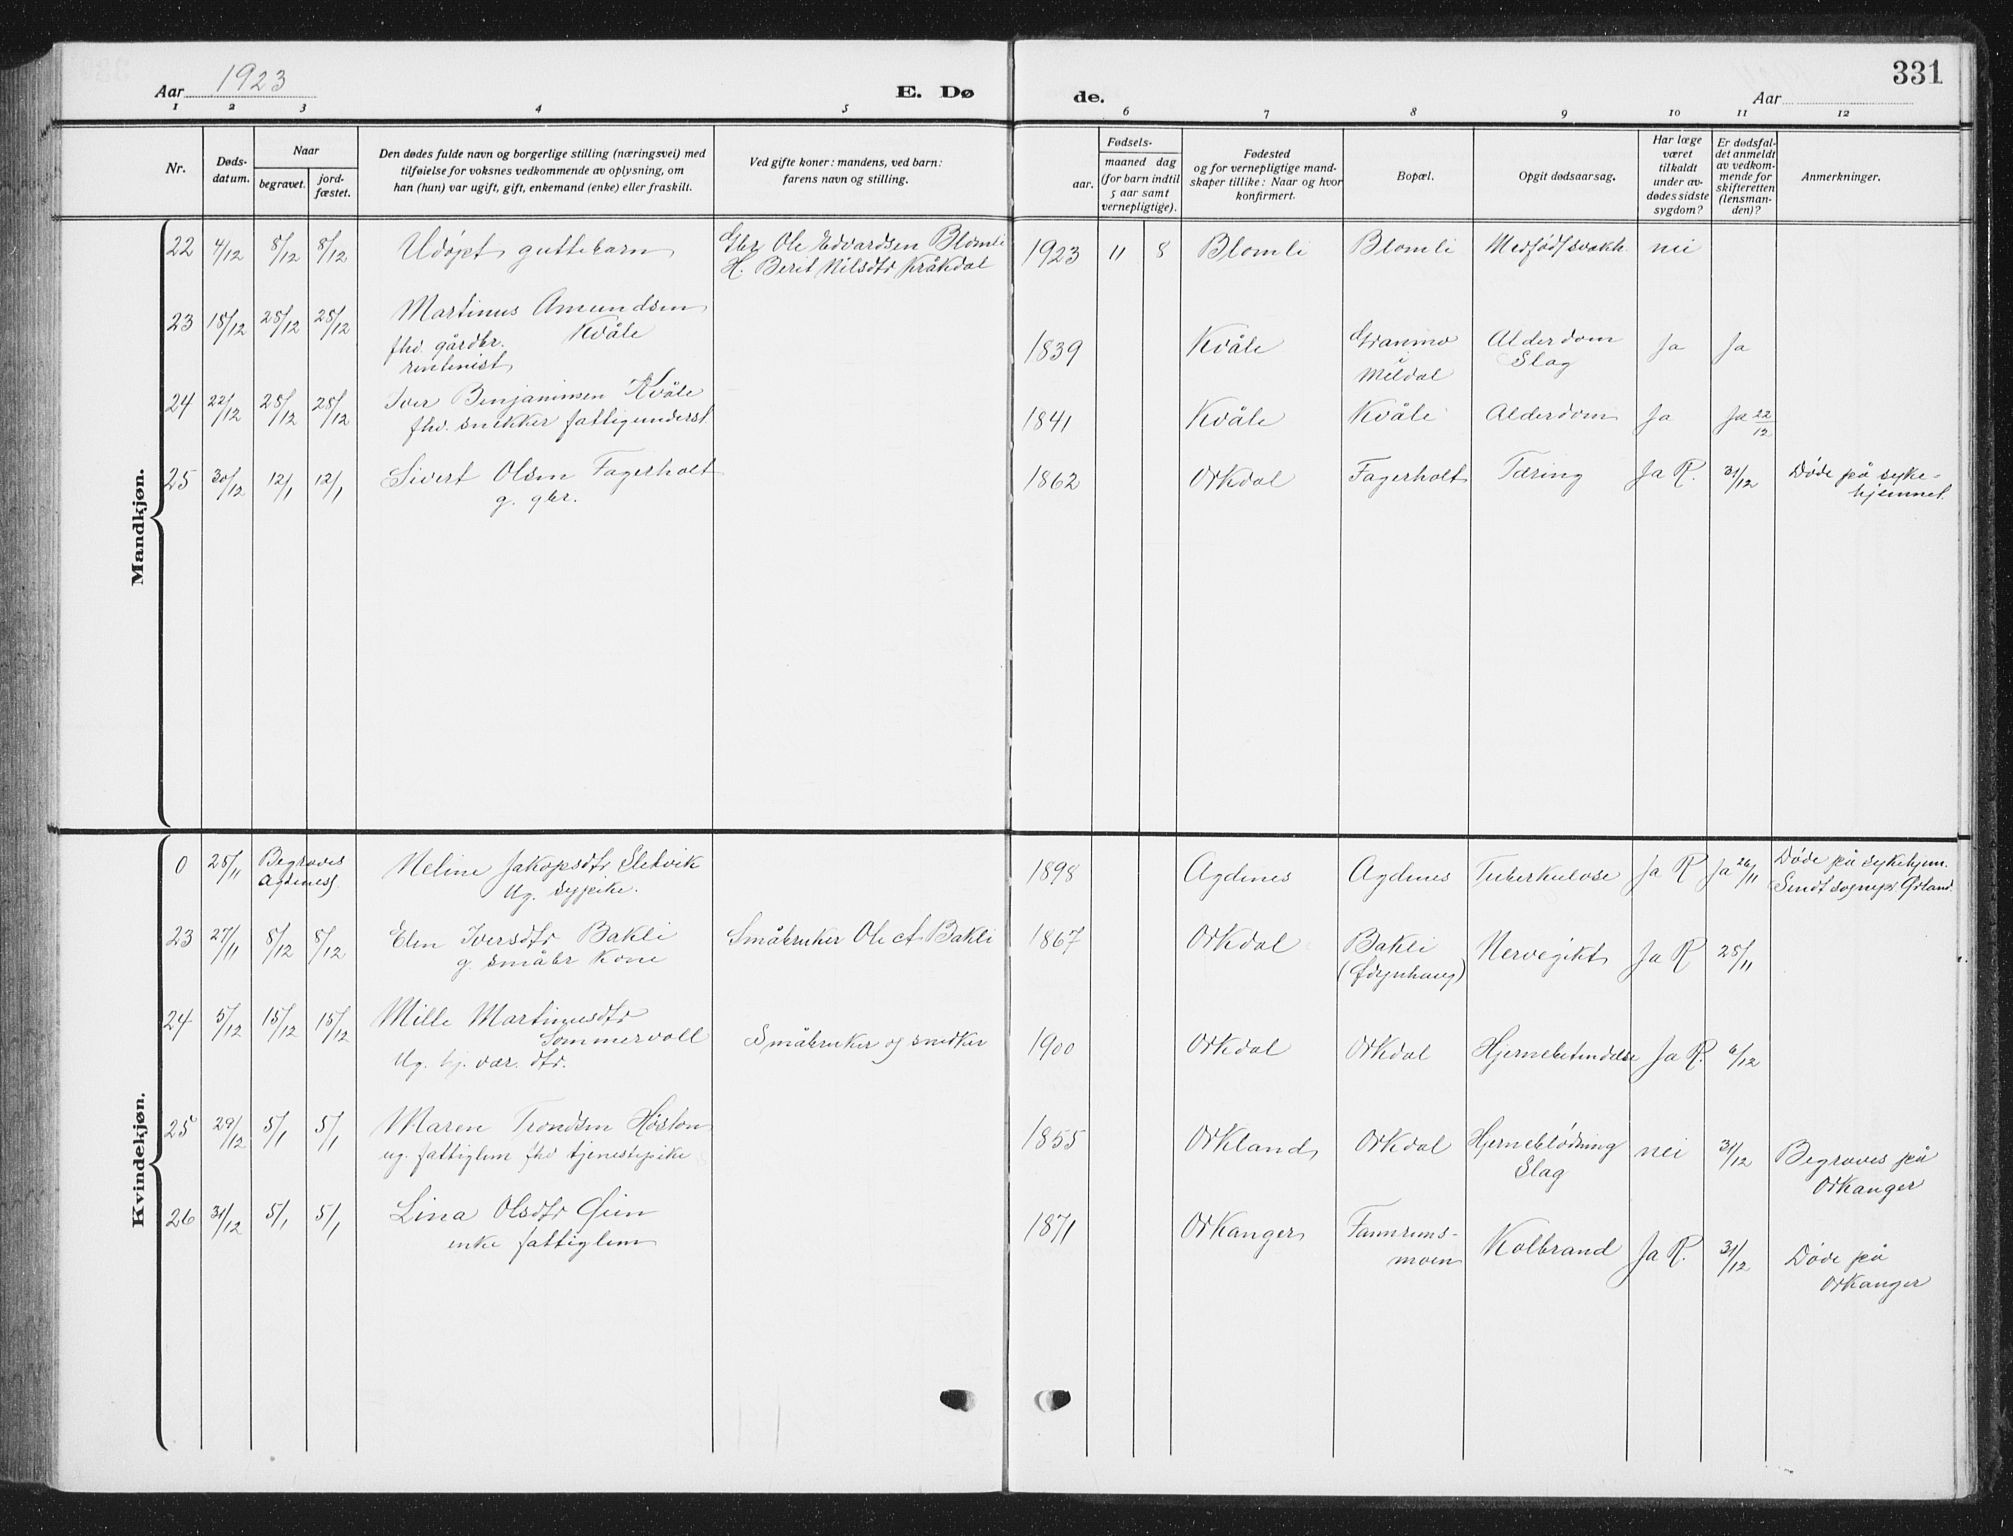 Aar 1923
E. Dø
de.
Aar
331
1 2 3 4 5 6 7 8 9 10 11 12
Nr.
Døds-
datum.
Naar
begravet.
jord-
fæstet.
Den dødes fulde navn og borgerlige stilling (næringsvei) med
tilføielse for voksnes vedkommende av oplysning, om
han (hun) var ugift, gift, enkemand (enke) eller fraskilt.
Ved gifte koner: mandens, ved barn:
farens navn og stilling.
Fødsels-
aar.
maaned dag
(for barn indtil
5 aar samt
vernepligtige).
Fødested
og for vernepligtige mand-
skaper tillike: Naar og hvor
konfirmert.
Bopæl.
Opgit dødsaarsag.
Har læge
været
tilkaldt
under av-
dødes sidste
sygdom?
Er dødsfal-
det anmeldt
av vedkom-
mende for
skifteretten
(lensman-
den)?
Anmerkninger.
Mandkjøn.
22 4/12 8/12 8/12 Udøpt guttebarn Gbr Ole Edvardsen Blomli 1923 11 8 Blomli Blomli Medfødt svakh. nei
H. Berit Nilsdtr Kråkdal
23 18/12 28/12 28/12 Martinus Amundsen
Kvåle
fhv. gårdbr.
rentenist
1839 Kvåle Granmo Alderdom Ja Ja
i Slag
Meldal
24 22/12 28/12 28/12 Iver Benjaminsen Kvåle
fhv. snekker fattigunderst.
1841 Kvåle Kvåle Alderdom Ja Ja 22/12
25 30/12 12/1 12/1 Sivert Olsen Fagerholt 1862 Orkdal Fagerholt Tæring Ja R. 31/12 Døde på syke-
g. gbr. hjemmet.
Kvindekjøn.
0 25/11 Begraves Meline Jakopsdtr. Sletvik 1898 Agdenes Agdenes Tuberkulose Ja R Ja 26/11 Døde på sykehjem.
Agdenes Ug. sypike. Sendt sognepr. Ørland.
23 27/11 8/12 8/12 Elen Iversdtr Bakli Småbruker Ole A Bakli 1867 Orkdal Bakli Nervegikt Ja R 28/11
g. småbr kone
24 5/12 15/12 15/12 Mille Martinusdtr
Sommervoll Småbruker og snedker
Ug. hj. vær. dtr.
1900 Orkdal Orkdal Hjernebetændelse Ja R. 6/12
25 29/12 5/1 5/1 Maren Trondsen Høston 1855 Orkland Orkdal Hjerneblødning nei 31/12 Begraves på
ug. fattiglem fhv tjenestepike Slag Orkanger
26 31/12 5/1 5/1 Lina Olsdtr Øien 1871 Orkanger Fannrems-
enke fattiglem moen
Kolbrand Ja R. 31/12 Døde på
Orkanger